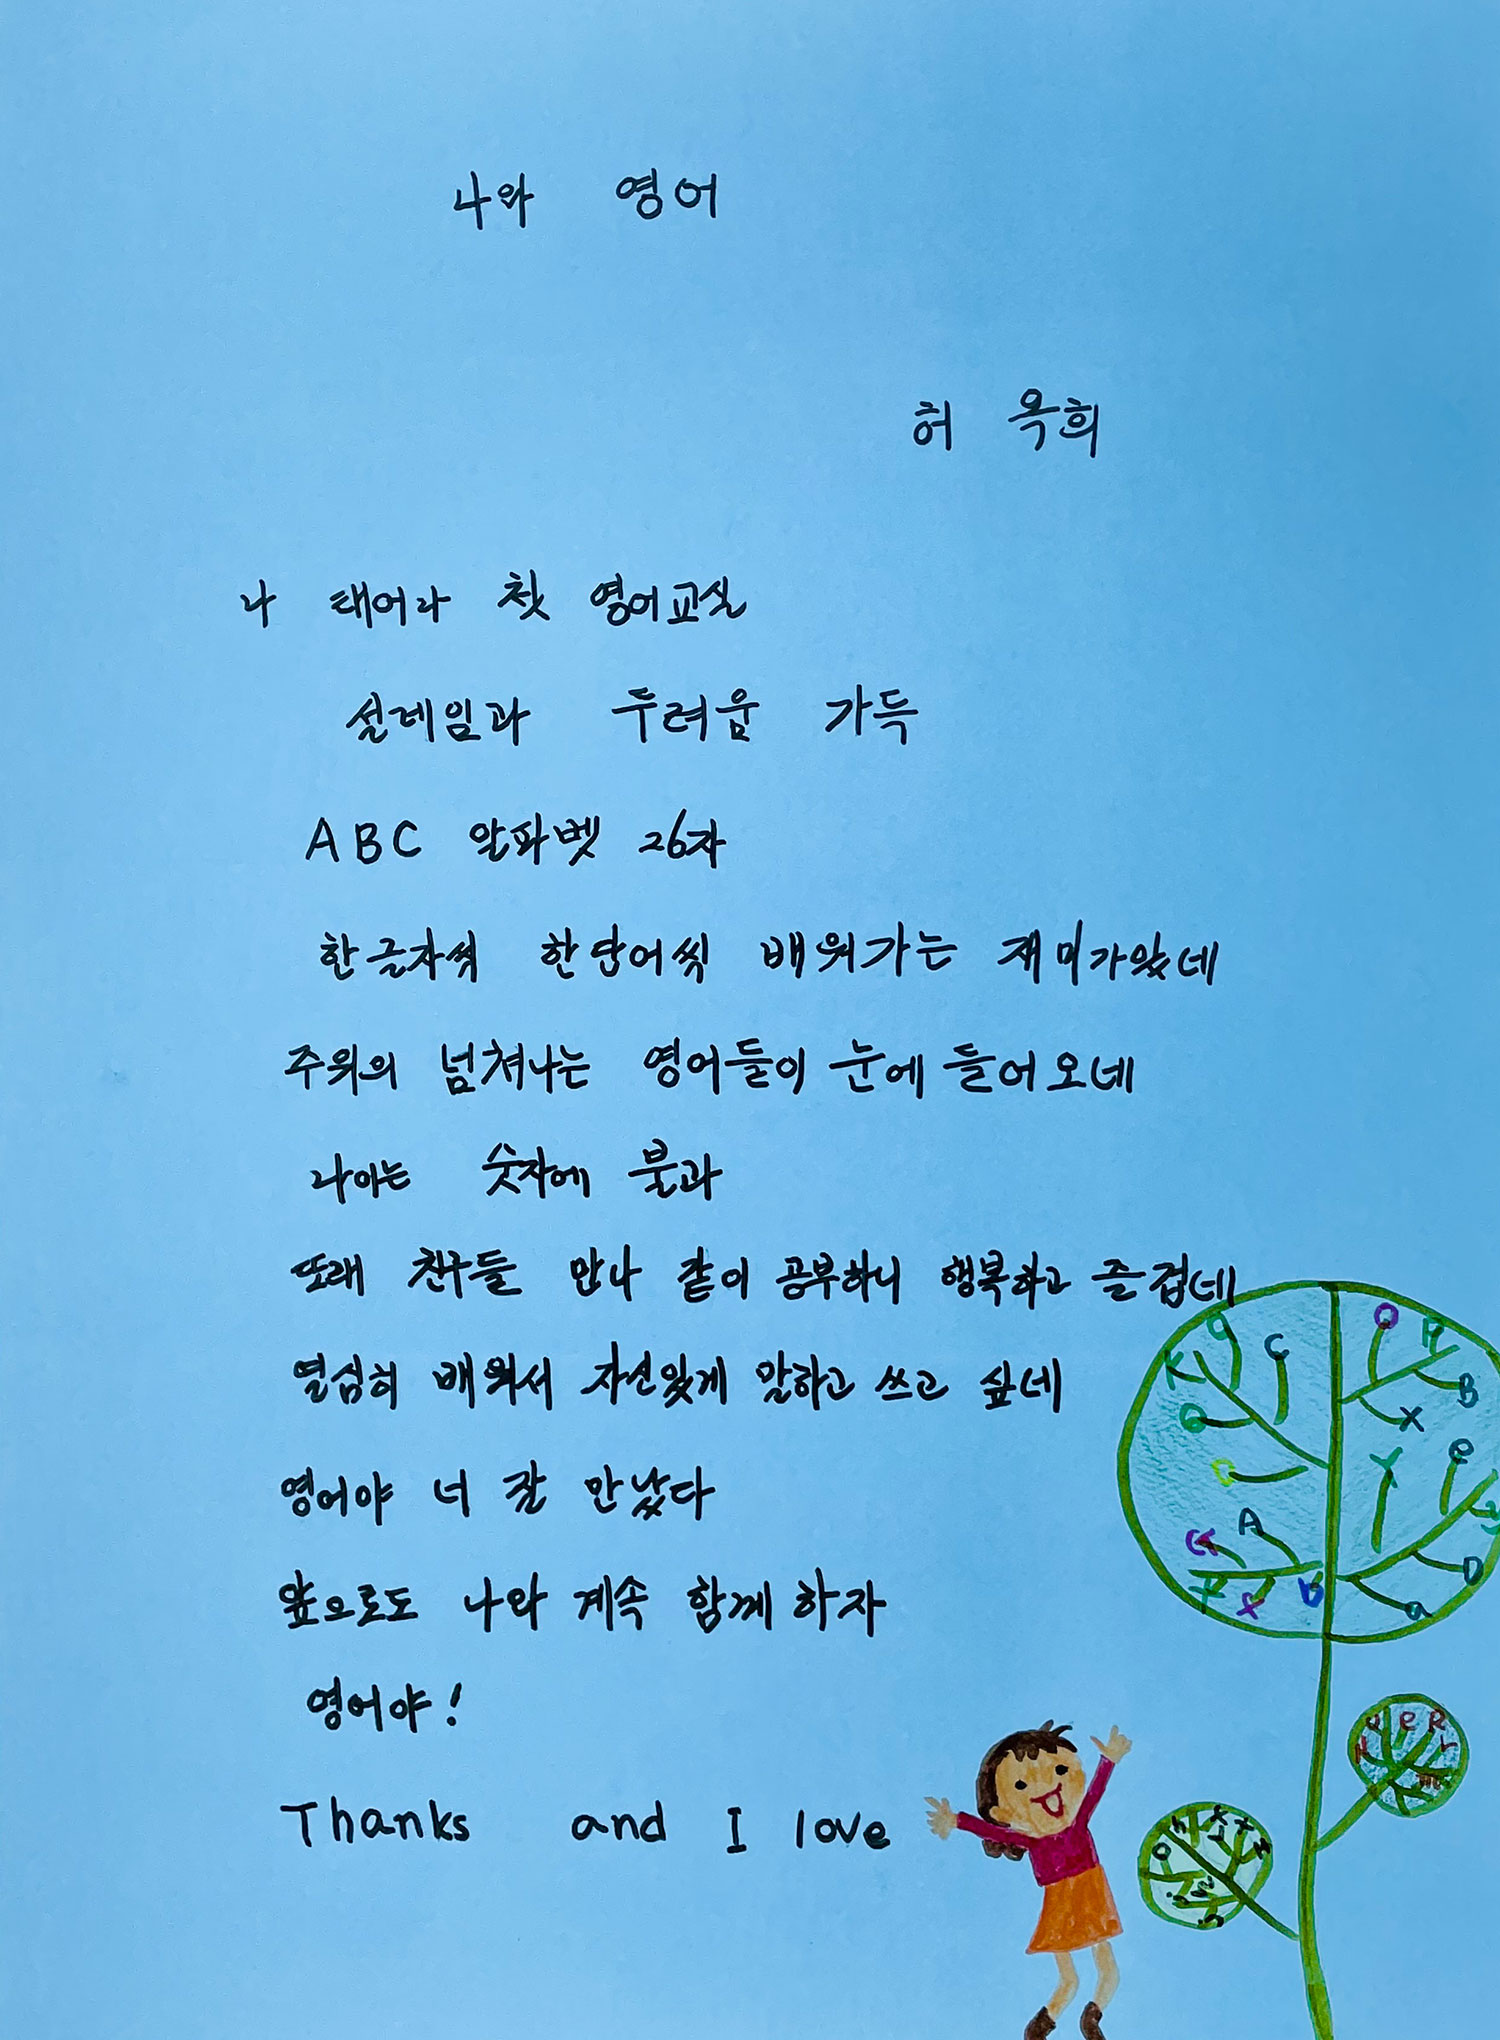 나와 영어
허 옥희
나 태어나 첫 영어교실
설레임과 두려움 가득
ABC 알파벳 26자
한글자씩 한단어씩 배워가는 재미가있네
주위의 넘쳐나는 영어들이 눈에 들어오네
나이는 숫자에 불과
또래 친구들 만나 같이 공부하니 행복하고 즐겁네
열심히 배워서 자신있게 말하고 쓰고 싶네
영어야 너 잘 만났다
앞으로도 나와 계속 함께하자
영어야!
Thanks and I love